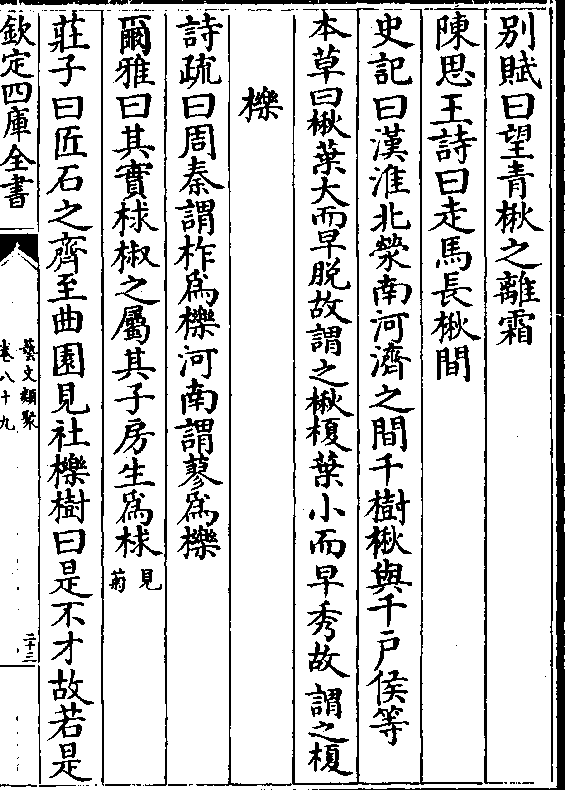 别賦曰望青楸之離霜
陳思王詩曰走馬長楸間
史記曰漢淮北滎南河濟之間千樹楸與千户侯等
本草曰楸葉大而早脱故謂之楸榎葉小而早秀故謂之榎
櫟
詩疏曰周秦謂柞為櫟河南謂蓼為櫟
爾雅曰其實梂椒之屬其子房生為梂見菊
莊子曰匠石之齊至曲園見社櫟樹曰是不才故若是
欽定四庫全書
藝文類聚
卷八十九
二十三